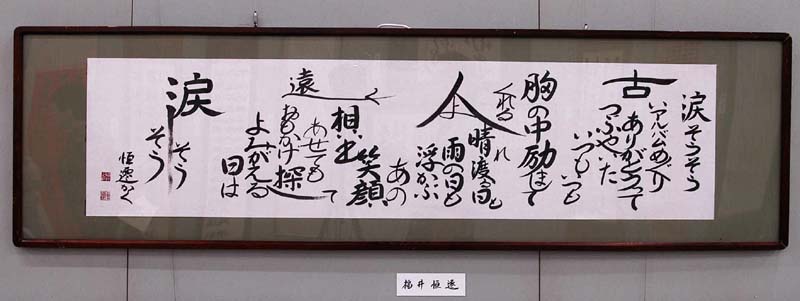 涙そうそう
古いアルバムめくり
ありがとうって
つぶやいた
いつもいつも
胸の中励まして
くれる
人よ
晴れ渡る日も
雨の日も
浮かぶ
あの
笑顔
想い出
遠く
あせても
おもかげ探して
よみがえる日は
涙そう
そう
恒遠かく
福井恒遠